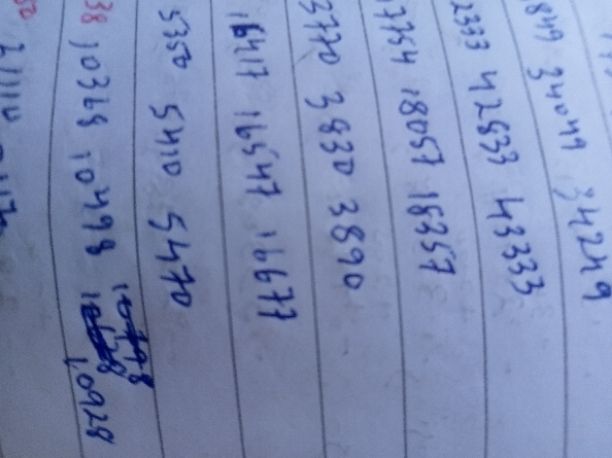 34049 34249
2333 42833 43333
17754 18057 18357
3770 3830 3890
16417 16547 16677
5350 5410 5470
38 10368 10498 10928